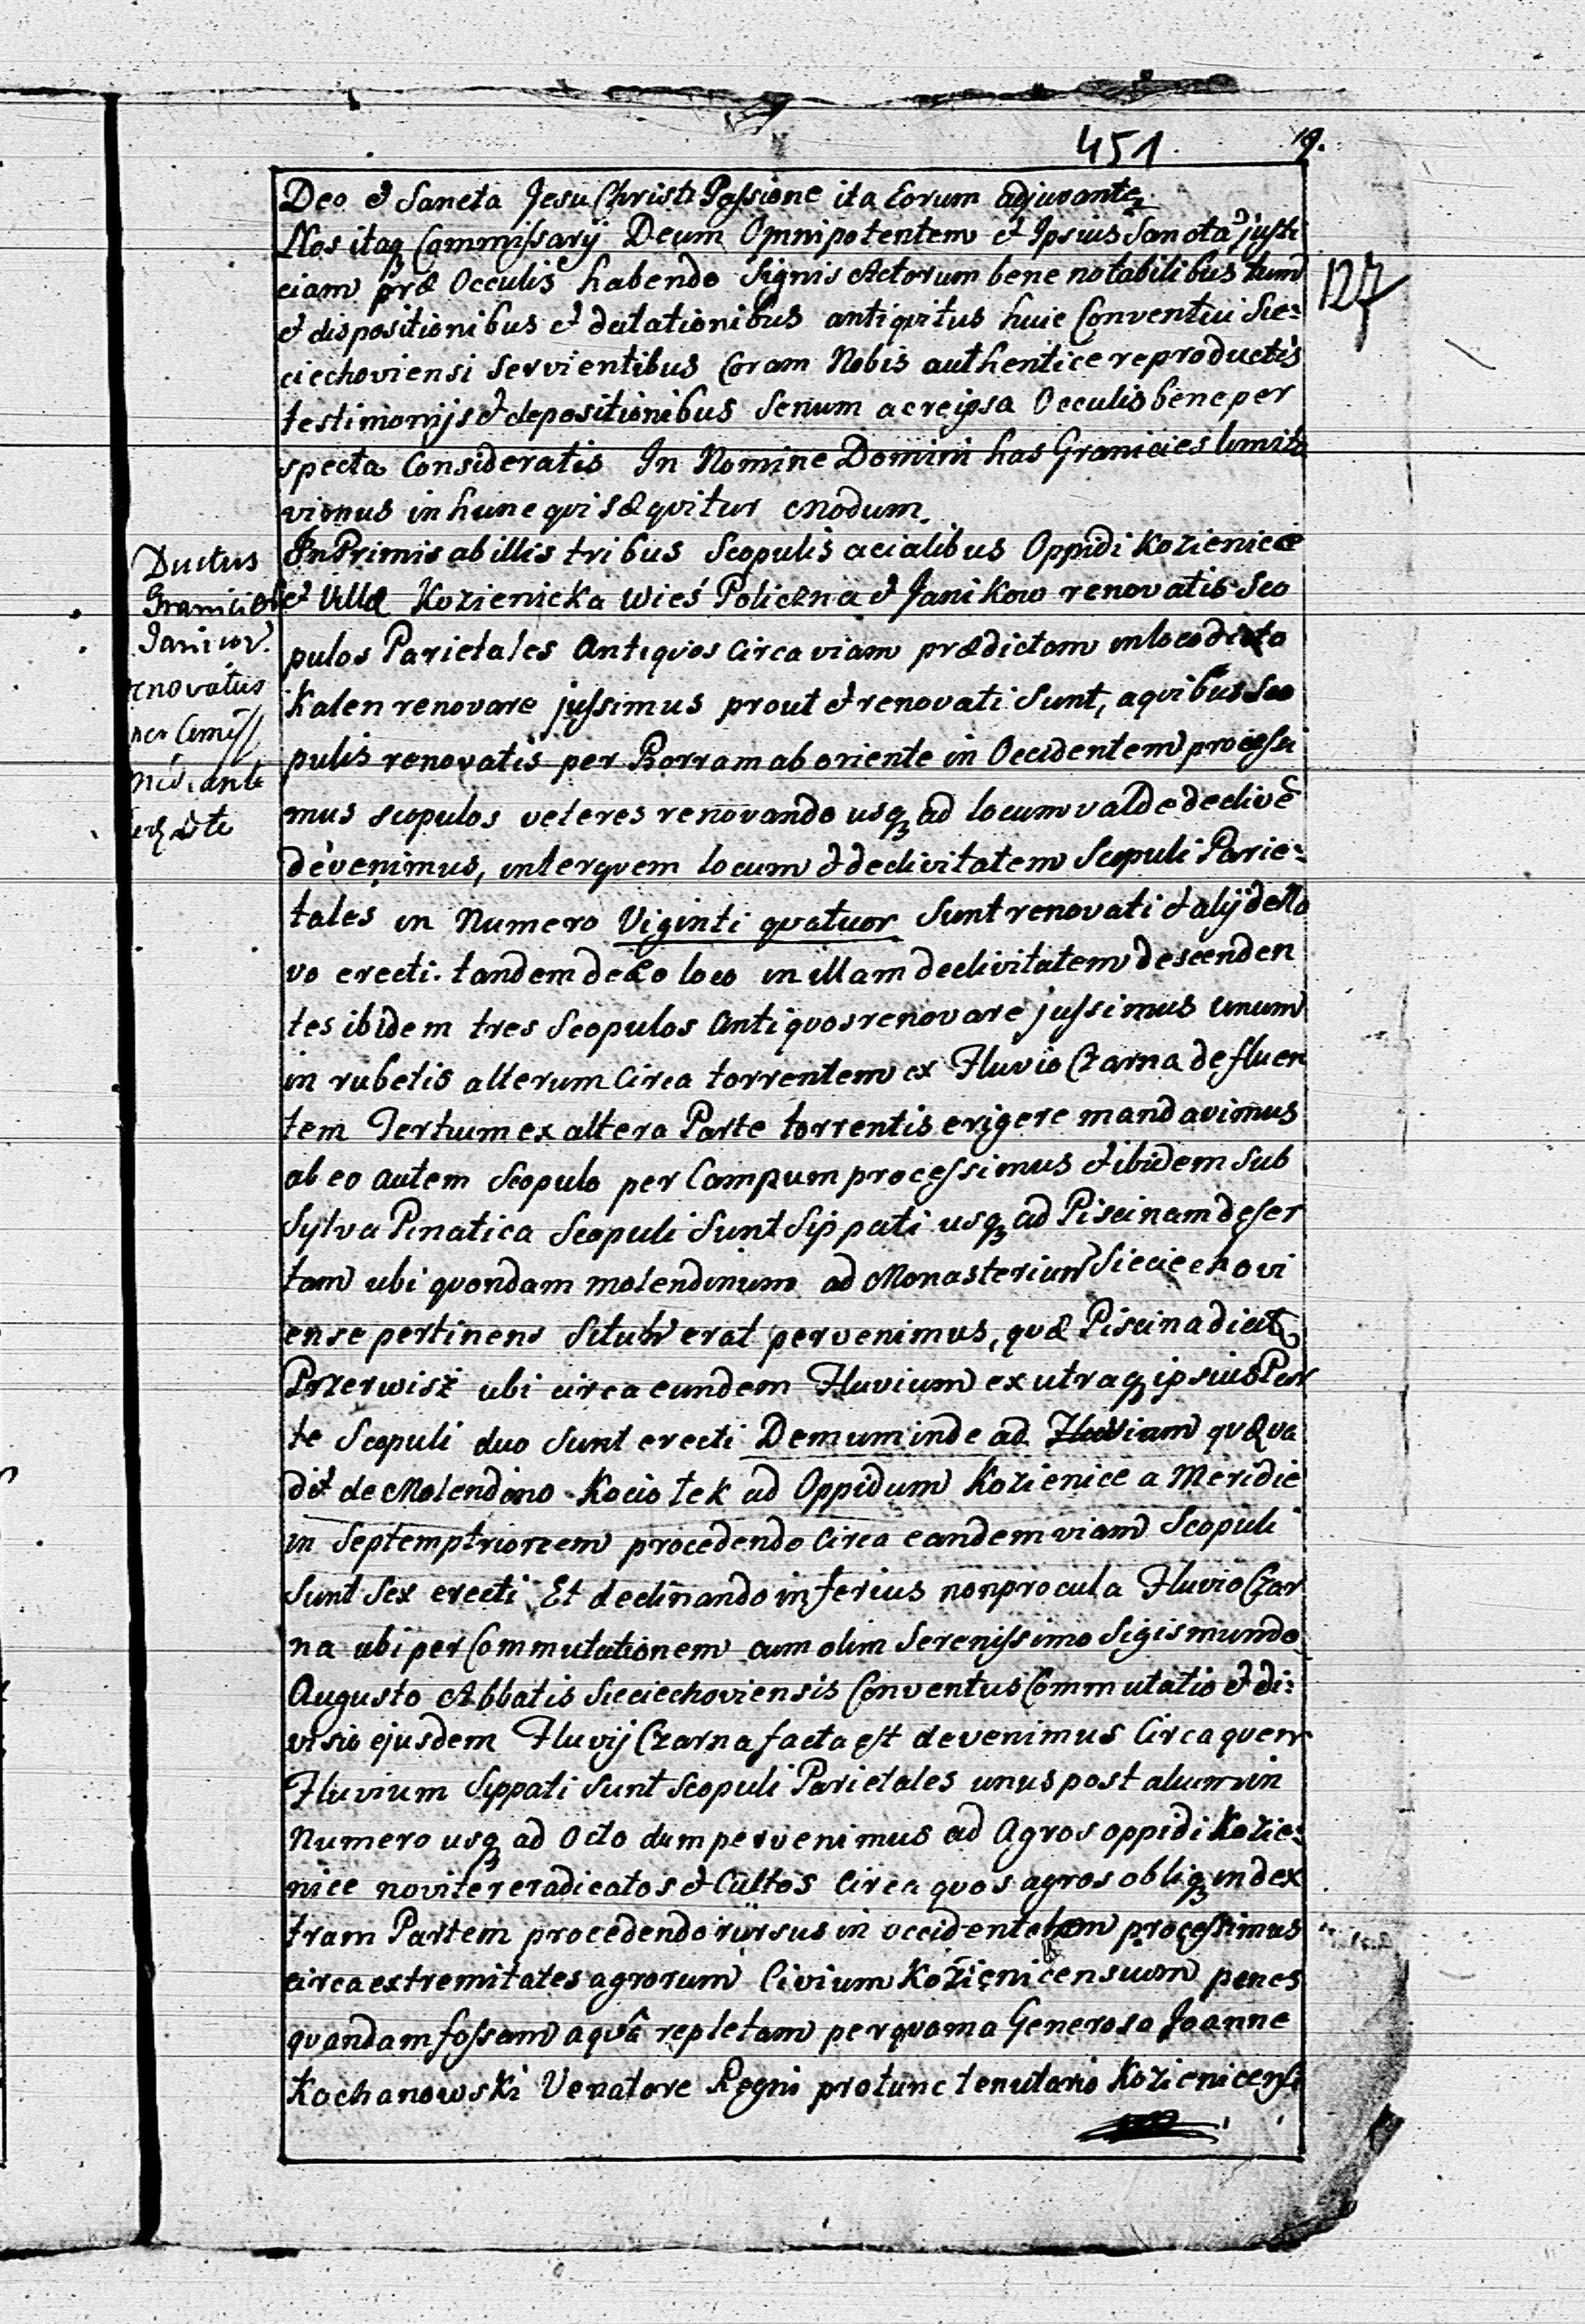 451.
19.
127
Deo & Sancta Jesu Christi Passione ita Eorum adjuvante,
Nos itaq Commissarij Deum Omnipotentem & Ipsius Sanctā justi
ciam præ Occulis habendo Signis Actorum bene notabilibus tum
& dispositionibus & dotationibus antiqvitus huic Conventui Sie:
ciechoviensi Servientibus Coram Nobis authentice reproductis
testimonijs & depositionibus Senum ac reipsa Occulis bene per
specta Consideratis In Nomine Domini has Granicies limita
vimus in hunc qvi sæqvitur modum.
In Primis ab illis tribus Scopulis acialibus Oppidi Kozienice
& Villæ Kozienicka Wieś Policzna & Janikow renovatis Sco
pulos Parietales Antiqvos Circa viam prædictam in loco dicto
Kalen renovare jussimus prout & renovati Sunt, a qvibus Sco
pulis renovatis per Borram ab oriente in Occidentem processi
mus scopulos veteres renovando usq ad locum valde declivē
devenimus, inter qvem locum & declivitatem Scopuli Parie:
tales in Numero Viginti qvatuor Sunt renovati & alij de No
vo erecti. tandem de eo loco in illam declivitatem descenden
tes ibidem tres Scopulos Antiqvos renovare jussimus unum
in rubetis alterum Circa torrentem ex Fluvio Czarna defluen
tem Tertium ex altera Parte torrentis erigere mandavimus
ab eo autem Scopulo per Campum processimus & ibidem Sub
Sylva Pinatica Scopuli Sunt Sippati usq ad Piscinam deser
tam ubi qvondam molendinum ad Monasterium Sieciechovi
ense pertinens Situm erat pervenimus, qvæ Piscina dicit
Przerwisz ubi circa eundem Fluvium ex utraq ipsius Par
te Scopuli duo Sunt erecti Demum inde ad Viam qvæ va
dit de Molendino Kociołek ad Oppidum Kozienice a Meridie
in Septemptrionem procedendo Circa eandem viam Scopuli
Sunt Sex erecti Et declinando inferius non procul a Fluvio Czar
na ubi per Commutationem cum olim Serenissimo Sigismundo
Augusto Abbatis Sieciechoviensis Conventus Commutatio & di:
visio ejusdem Fluvij Czarna facta est devenimus Circa quem
Fluvium Sippati Sunt Scopuli Parietales unus post alium in
Numero usq ad Octo dum pervenimus ad Agros oppidi Kozie:
nice noviter eradicatos & Cultos Circa quos agros obliq in dex
tram Partem procedendo rursus in occidentem processimus
circa extremitates agrorum Civium Kozienicensium penes
qvandam fossam aqvâ repletam per qvam a Generoso Joanne
Kochanowski Venatore Regni pro tunc tenutario Kozienicensi
Ductus
Granicier
Janicov.
renovatus
per Comiss